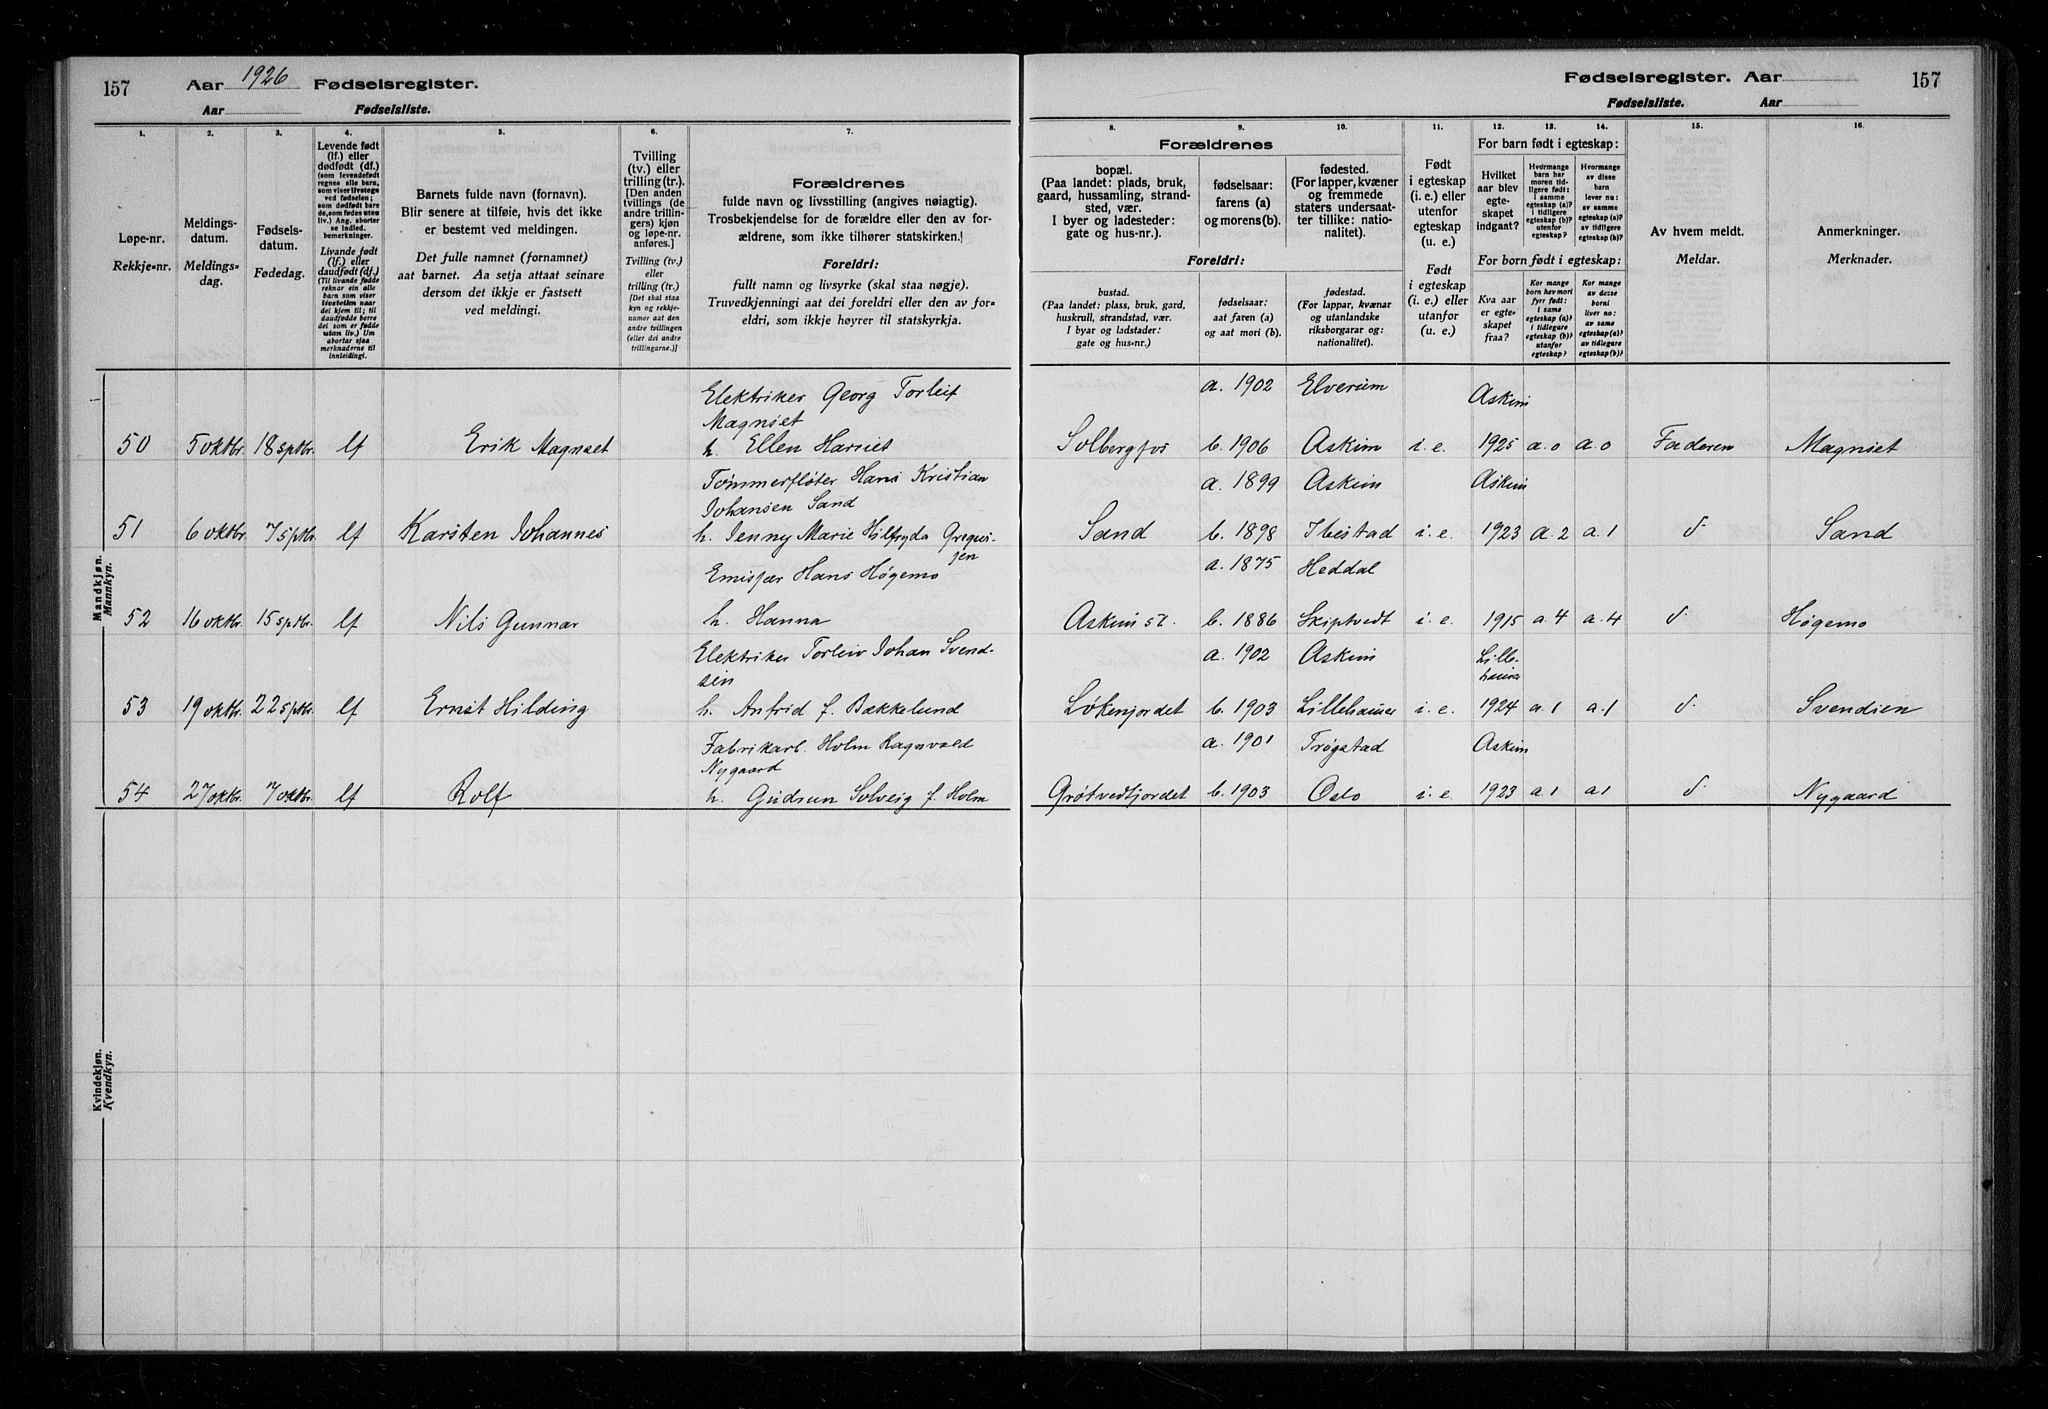 157 Aar 1926 Fødselsregister.
Aar Fødselsliste.
Fødselsregister. Aar 157
Fødselsliste. Aar
1. 2. 3. 4. 5. 6. 7.
Løpe-nr.
Rekkje-nr.
Meldings-
datum.
Meldings-
dag.
Fødsels-
datum.
Fødedag.
Levende født
(lf.) eller
dødfødt (df.)
(som levendefødt
regnes alle barn,
som viser livstegn
ved fødselen;
som dødfødt bare
de, som fødes uten
liv.) Ang. aborter
se indled.
bemerkninger.
Livande født
(lf.) eller
daudfødt (df.)
(Til livande fødde
reknar ein alle
barn som viser
livsteikn naar
dei kjem til; til
daudfødde berre
dei som er fødde
utan liv.) Um
abortar sjaa
merknaderne til
innleidingi.
Barnets fulde navn (fornavn).
Blir senere at tilføie, hvis det ikke
er bestemt ved meldingen.
Det fulle namnet (fornamnet)
aat barnet. Aa setja attaat seinare
dersom det ikkje er fastsett
ved meldingi.
Tvilling
(tv.) eller
trilling (tr.).
[Den anden
tvillings (de
andre trillin-
gers) kjøn
og løpe-nr.
anføres.]
Tvilling (tv.)
eller
trilling (tr.)
[Det skal staa
kyn og rekkje-
numer aat den
andre tvillingen
(eller dei andre
trillingarne.)]
Forældrenes
fulde navn og livsstilling (angives nøiagtig).
Trosbekjendelse for de forældre eller den av for-
ældrene, som ikke tilhører statskirken.
Foreldri:
fullt namn og livsyrke (skal staa nøgje).
Truvedkjenningi aat dei foreldri eller den av for-
eldri, som ikkje høyrer til statskyrkja.
8. 9. 10. 11. 12. 13. 14. 15. 16.
Forældrenes
bopæl.
(Paa landet: plads, bruk,
gaard, hussamling, strand-
sted, vær.
I byer og ladesteder:
gate og hus-nr.).
fødselsaar:
farens (a)
og morens (b).
fødested.
(For lapper, kvæner
og fremmede
staters undersaat-
ter tillike: natio-
nalitet).
Foreldri:
bustad.
(Paa landet: plass, bruk, gard,
huskrull, strandstad, vær.
I byar og ladstader:
gate og hus-nr.)
fødselsaar:
aat faren (a)
og aat mori (b).
fødestad.
(For lappar, kvænar
og utanlandske
riksborgarar og:
nationalitet).
Født
i egteskap
(i. e.) eller
utenfor
egteskap
(u. e.)
Født
i egteskap
(i. e.) eller
utanfor
(u. e.).
For barn født i egteskap:
Hvilket
aar blev
egte-
skapet
indgaat?
Hvormange
barn har
moren tid-
ligere født:
i samme
egteskap (a)?
i tidligere
egteskap (b)?
utenfor
egteskap?
Hvormange
av disse
barn
lever nu:
av samme
egteskap (a)?
av tidligere
egteskap (b)?
For born født i egteskap:
Kva aar
er egte-
skapet
fraa?
Kor mange
born hev mori
fyrr født:
i same
egteskap (a)?
i tidlegare
egteskap (b)?
utanfor
egteskap?
Kor mange
av desse
borni
liver no:
av same
egteskap (a)?
av tidlegare
egteskap (b)?
Av hvem meldt.
Meldar.
Anmerkninger.
Merknader.
Mandkjøn.
Mannkyn.
Elektriker Georg Torleif a. 1902 Elverum Askim
Magnset
50 5 oktbr. 18 sptbr. lf Erik Magnset h. Ellen Harriet Solbergfos b. 1906 Askim i. e. 1925 a. 0 a. 0 Faderen Magnset
Tømmerfløter Hans Kristian a. 1899 Askim Askim
Johansen Sand
51 6 oktbr. 7 sptbr. lf Karsten Johannes h. Jenny Marie Hilfryda Gregus- Sand b. 1898 Ibestad i. e. 1923 a. 2 a. 1 d. Sand
sen
Hans Høgemo a. 1875 Heddal
52 16 oktbr. 15 sptbr. lf Nils Gunnar h. Hanna Askim st. b. 1886 Skiptvedt i. e. 1915 a. 4 a. 4 d. Høgemo
Elektriker Torleiv Johan Svend- a. 1902 Askim Lille-
sen
53 19 oktbr. 22 sptbr. lf Ernst Hilding h. Anfrid f. Bækkelund Løkenjordet b. 1903 Lillehamer i. e. 1924 a. 1 a. 1 d. Svendsen
Fabrikarb. Holm Ragnvald a. 1901 Trøgstad Askim
Nygaard
54 27 oktbr. 7 oktbr. lf Rolf h. Gudrun Solveig f. Holm Grøtvedtjordet b. 1903 Oslo i. e. 1923 a. 1 a. 1 d. Nygaard
Kvindekjøn.
Kvendkyn.